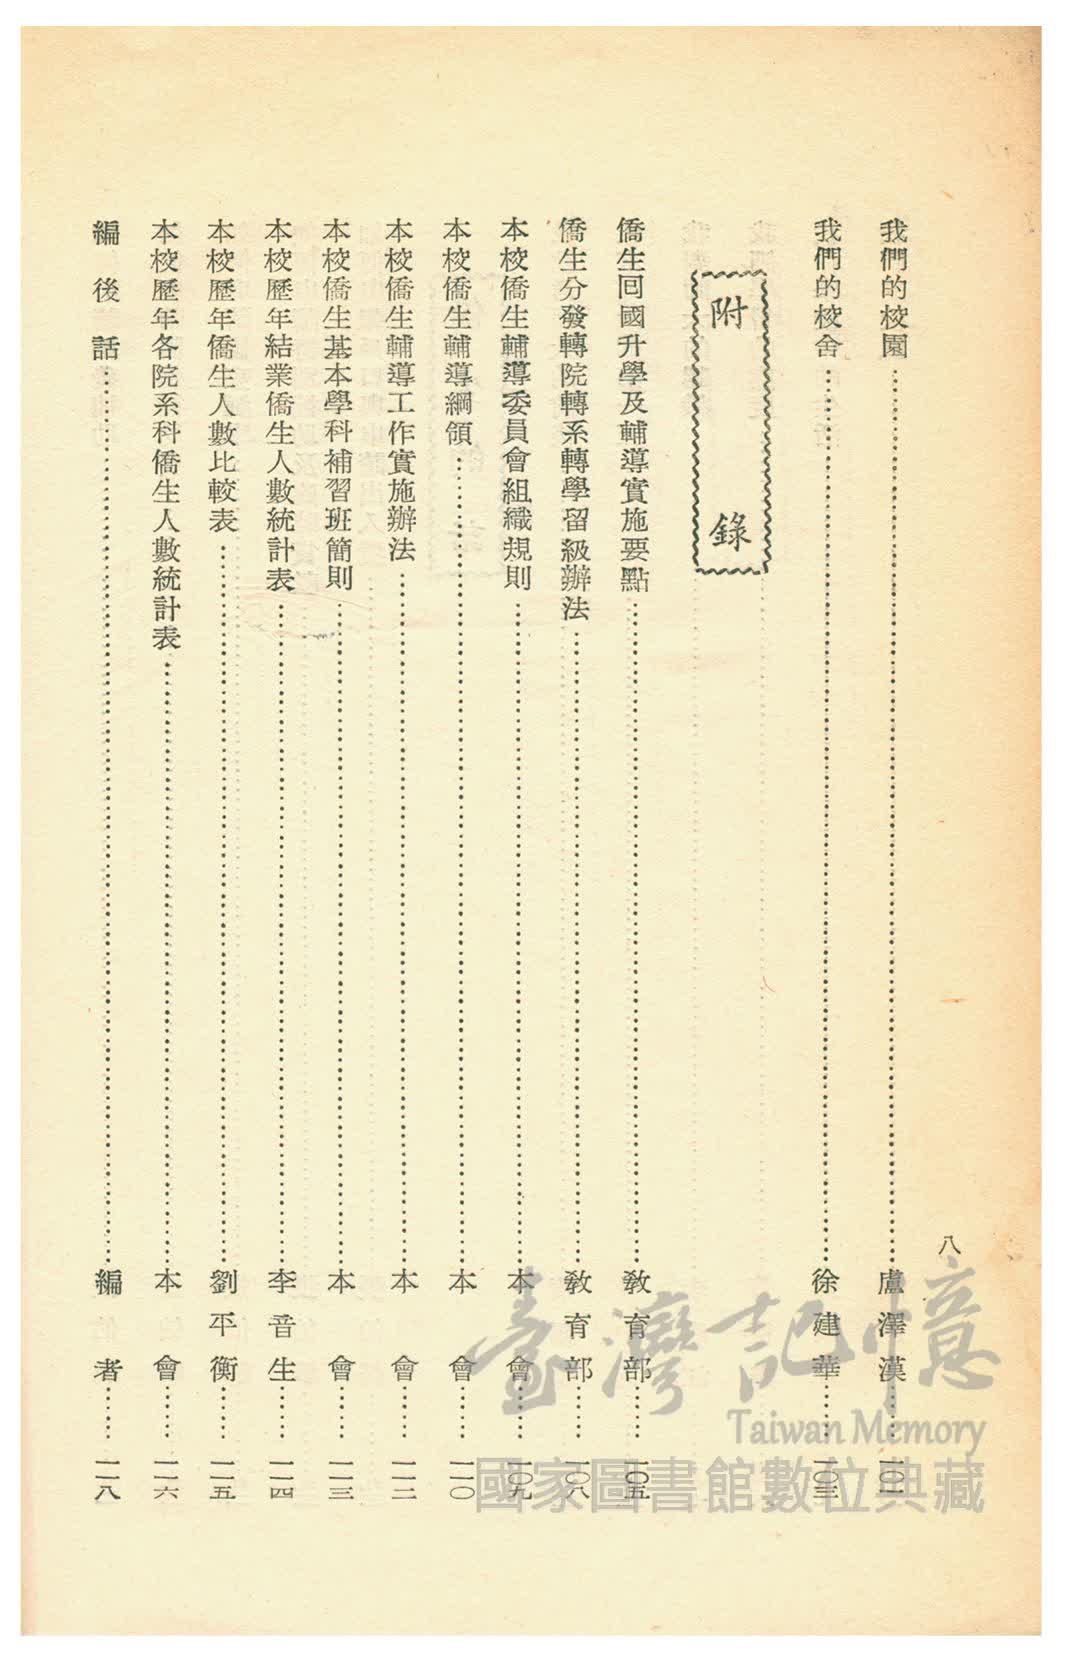 八
我們的校園…………盧澤漢……一〇一
我們的校舍…………徐建華……一〇三
附錄
僑生回國升學及輔導實施要點…………教育部……一〇五
僑生分發轉院轉系轉學留級辦法…………教育部……一〇八
本校僑生輔導委員會組織規則…………本會……一〇九
本校僑生輔導綱領…………本會……一一〇
本校僑生輔導工作實施辦法…………本會……一一二
本校僑生基本學科補習班簡則…………本會……一一三
本校歷年結業僑生人數統計表…………李音生……一一四
本校歷年僑生人數比較表…………劉平衡……一一五
本校歷年各院系科僑生人數統計表…………本會……一一六
編後話…………編者……一一八
臺灣記憶
Taiwan Memory
國家圖書館數位典藏